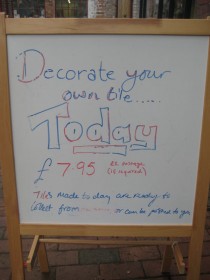 Decorate your
own tile.....
Today
£ 7.95
Tiles made today are ready to
collect from or can be posted to you